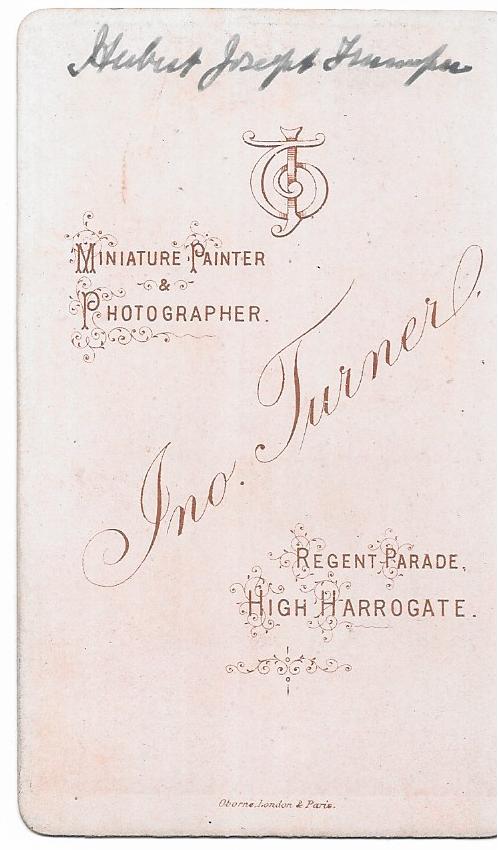 Hubert Joseph
JT
Miniature Painter
&
Photographer.
Jno. Turner.
Regent Parade,
High Harrogate.
Oborne, London & Paris.